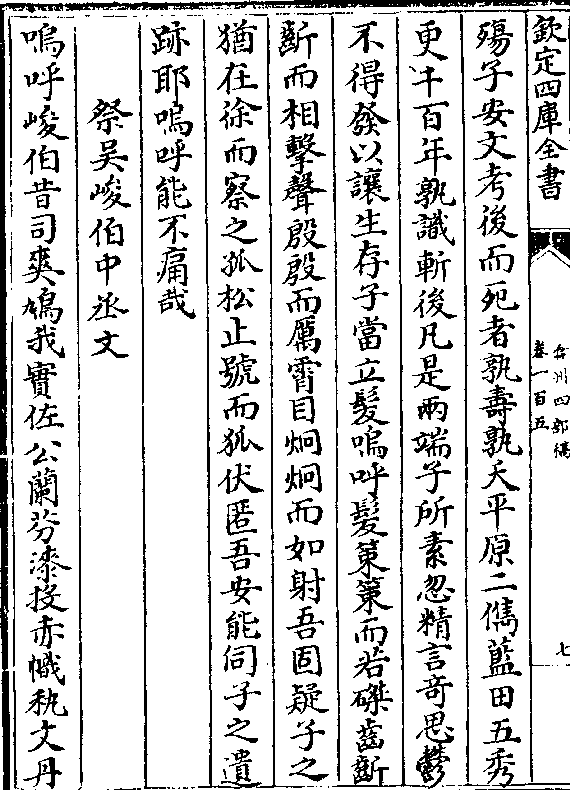 欽定四庫全書
弇州四部稿
卷一百五
七
殤子安文考後而死者孰壽孰夭平原二儁藍田五秀
更千百年孰識斬後凡是兩端子所素忽精言奇思鬱
不得發以讓生存子當立髮嗚呼髮策策而若磔齒齗
齗而相擊聲殷殷而厲霄目炯炯而如射吾固疑子之
猶在徐而察之孤松止號而狐伏匿吾安能伺子之遺
跡耶嗚呼能不痛哉
祭吳峻伯中丞文
嗚呼峻伯昔司爽鳩我實佐公蘭芬漆投赤幟執文丹